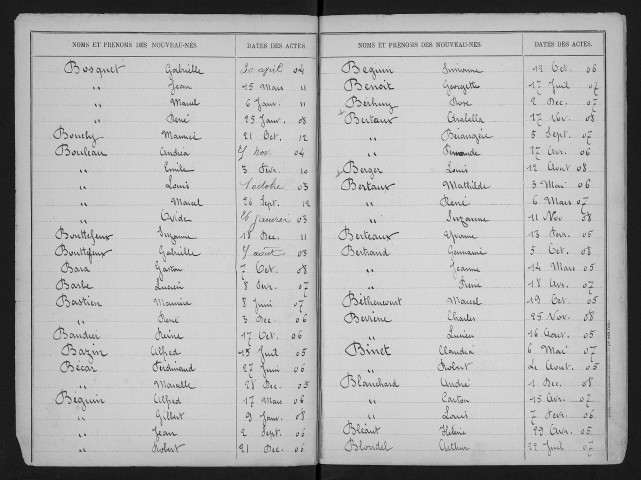 NOMS ET PRÉNOMS DES NOUVEAU-NÉS DATES DES ACTES
Bosquet Gabrielle 20 april 04
" Jean 15 Mars 11
" Marcel 6 Janv. 11
" René 25 Janv. 08
Bouchy Maurice 21 Oct. 12
Bouleau Andréa 7 Nov. 04
" Emile 3 Fév. 10
" Louis 1 octobre 03
" Marcel 26 Sept. 12
" Ovide janvier 03
Bouttefeux Suzanne 18 Dec. 11
Bouttefeux Gabrielle 7 août 03
Bara Gaston 7 Oct. 08
Barbe Lucien 8 Fevr. 07
Bastien Maurice 8 Juin 07
" René 3 Dec. 06
Baudier Reine 17 Oct. 06
Bazin Alfred 15 Juil 05
Bécar Ferdinand 27 Juin 06
" Marcelle 28 Dec. 05
Beguin Alfred 17 Mars 06
" Gilbert 9 Janv. 08
" Jean 2 Sept. 06
" Robert 21 Dec. 06
NOMS ET PRÉNOMS DES NOUVEAU-NÉS DATES DES ACTES
Beguin Simonne 12 Oct. 06
Benoit Georgette 17 Juil 07
Rose 2 Dec. 07
Bertaux Arabella 17 Nov. 08
" Bérangère 5 Sept. 07
" Fernande 27 Avr. 06
Berger Louis 12 Aout 08
Bertaux Mathilde 3 Mai 06
" René 6 Mars 07
" Suzanne 11 Nov 08
Berteaux Yvonne 13 Fevr. 05
Bertrand Germaine 5 Oct. 08
" Jeanne 14 Mars 05
" René 18 Avr. 07
Béthencourt Marcel 19 Oct. 05
Charles 25 Nov. 08
" Lucien 16 Aout. 05
Binet Claudia 6 Mai 07
" Robert Aout. 05
Blanchard André 1 Dec. 08
" Gaston 15 Avr. 07
" Louis 7 Fevr. 06
Bléant Hélène 29 Avr. 05
Blondel Arthur 22 Juil 07